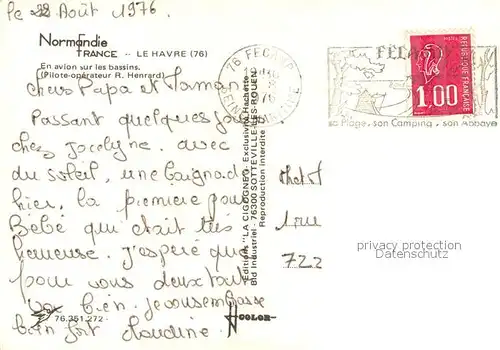 Le 22 Août 1976.
Normandie
FRANCE - LE HAVRE (76)
En avion sur les bassins.
(Pilote-opérateur R. Henrard)
76 FECAMP
FECAMP
POSTES
REPUBLIQUE FRANCAISE
1,00
sa Plage, son Camping, son Abbaye
chers Papa et Maman
Passant quelques jours
chez Jocelyne. avec
du soleil, une baignade
hier, la première pour
Bébé qui était très
heureuse. j'espère que
pour vous deux tout
va bien. je vous embrasse
bien fort Claudine.
Editions "LA CIGOGNE" - Exclusivité Hachette
Bld Industriel - 76300 SOTTEVILLE-LES-ROUEN
Reproduction Interdite
722
privacy protection
Datenschutz
76.351.272
COLOR